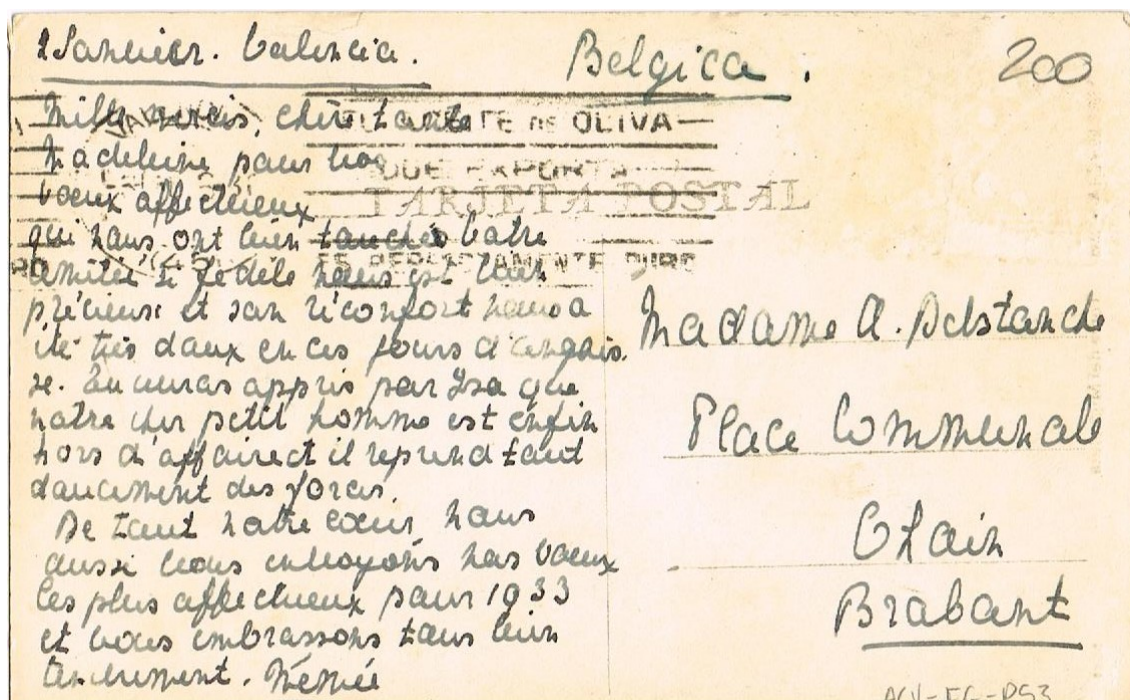 2 Janvier. Valencia.
Belgica.
200
Mille mercis, chère tante
Madeleine pour vos
voeux affectueux
qui nous ont bien touchés Votre
amitié si fidèle nous est bien
précieuse et son réconfort nous a
été très doux en ces jours d'angois
se. Tu auras appris par Isa que
notre cher petit homme est enfin
hors d'affaire et il reprend tout
doucement des forces.
De tout notre coeur nous
aussi vous envoyons nos voeux
les plus affectueux pour 1933
et vous embrassons tous bien
tendrement. Mémée
ACEITE DE OLIVA
QUE EXPORTA
TARJETA POSTAL
ES PERFECTAMENTE PURO
Madame A. Delstanche
Place Communale
Ohain
Brabant